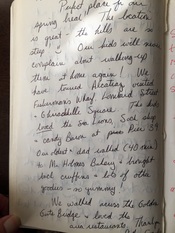 Perfect place for our
spring break! The location
is great - the hills are so
steep! Our kids will never
complain about walking up
them at home again! We
have toured Alcatraz, visited
Fisherman's Wharf, Lombard Street
+ Ghirardelli Square. The kids
loved the Sea Lions, Sock shop
+ candy Baron at Pier 39.
Our dad walked (40 min)
to Mr. Holmes Bakery + brought
back cruffins + lots of other
goodies - so yummy!
We walked across the Golden
Gate Bridge + loved the
restaurants.